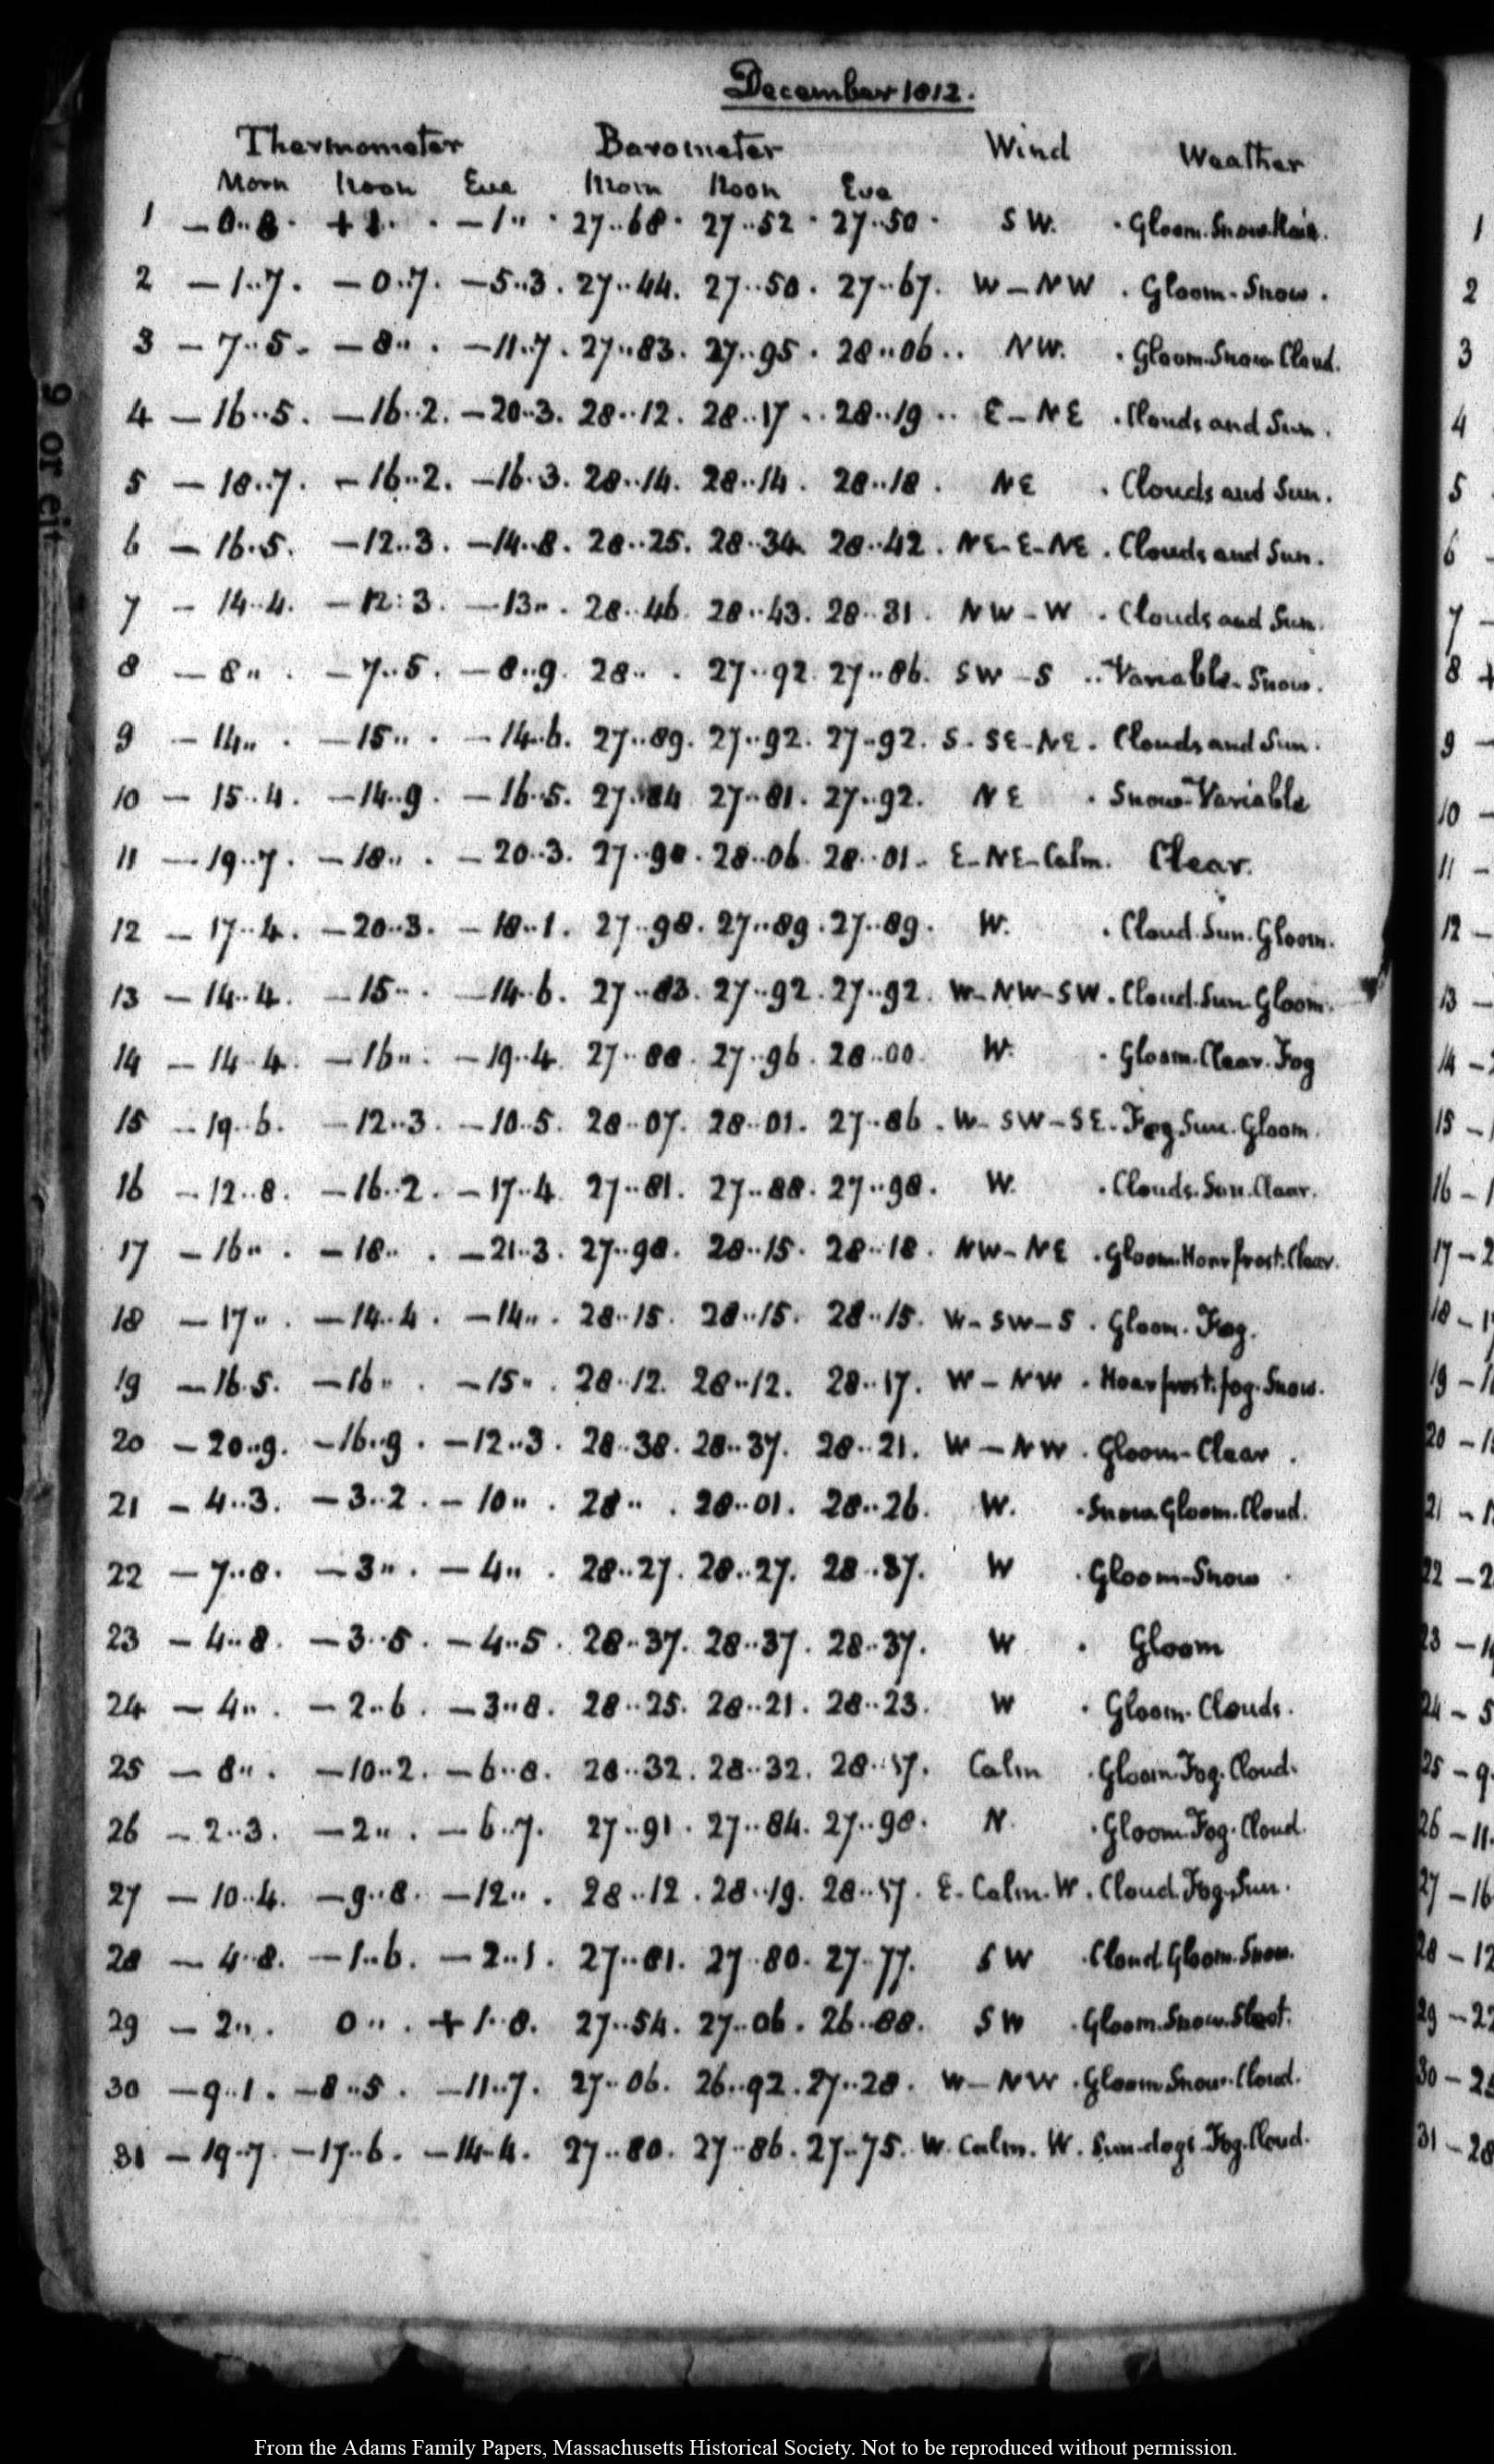 December 1812.
Thermometer Barometer Wind Weather
Morn Noon Eve Morn Noon Eve
1 — 0..8. + 1.. . — 1.. . 27..68. 27..52. 27..50. SW. . Gloom. Snow. Rain.
2 — 1..7. — 0..7. — 5..3. 27..44. 27..50. 27..67. W – NW . Gloom - Snow.
3 — 7..5. — 8.. . — 11..7. 27..83. 27..95. 28..06.. NW. . Gloom. Snow. Cloud.
4 — 16..5. — 16..2. — 20..3. 28..12. 28..17.. 28..19.. E – NE . Clouds and Sun.
5 — 18..7. — 16..2. — 16..3. 28..14. 28..14. 28..18. NE . Clouds and Sun.
6 — 16..5. — 12..3. — 14..8. 28..25. 28..34. 28..42. NE - E - NE . Clouds and Sun.
7 — 14..4. — 12..3. — 13.. . 28..46. 28..43. 28..31. NW – W . Clouds and Sun.
8 — 8.. . — 7..5. — 8..9. 28.. . 27..92. 27..86. SW – S .. Variable - Snow.
9 — 14.. . — 15.. . — 14..6. 27..89. 27..92. 27..92. S - SE - NE . Clouds and Sun.
10 — 15..4. — 14..9. — 16..5. 27..84 27..81. 27..92. NE . Snow - Variable
11 — 19..7. — 18.. . — 20..3. 27..98. 28..06. 28..01. E - NE - Calm. Clear.
12 — 17..4. — 20..3. — 18..1. 27..98. 27..89. 27..89. W. . Cloud. Sun. Gloom.
13 — 14..4. — 15.. . — 14..6. 27..83. 27..92. 27..92. W - NW - SW . Cloud. Sun. Gloom.
14 — 14..4. — 16.. . — 19..4. 27..88. 27..96. 28..00. W. . Gloom. Clear. Fog
15 — 19..6. — 12..3. — 10..5. 28..07. 28..01. 27..86. W - SW – SE . Fog Sun. Gloom.
16 — 12..8. — 16..2. — 17..4. 27..81. 27..88. 27..98. W. . Clouds. Sun. Clear.
17 — 16.. . — 18.. . — 21..3. 27..98. 28..15. 28..18. NW – NE . Gloom. Hoarfrost. Clear.
18 — 17.. . — 14..4. — 14.. . 28..15. 28..15. 28..15. W - SW – S . Gloom. Fog.
19 — 16..5. — 16.. . — 15.. . 28..12. 28..12. 28..17. W – NW . Hoarfrost. fog. Snow.
20 — 20..9. — 16..9. — 12..3. 28..38. 28..37. 28..21. W – NW . Gloom - Clear .
21 — 4..3. — 3..2. — 10.. . 28.. . 28..01. 28..26. W. . Snow. Gloom. Cloud.
22 — 7..8. — 3.. . — 4.. . 28..27. 28..27. 28..37. W . Gloom - Snow .
23 — 4..8. — 3..5. — 4..5. 28..37. 28..37. 28..37. W . Gloom
24 — 4.. . — 2..6. — 3..8. 28..25. 28..21. 28..23. W . Gloom. Clouds.
25 — 8.. . — 10..2. — 6..8. 28..32. 28..32. Calm . Gloom. Fog. Cloud.
26 — 2..3. — 2.. . — 6..7. 27..91. 27..84. 27..98. N. . Gloom. Fog. Cloud.
27 — 10..4. — 9..8. — 12.. . 28..12. 28..19. E. Calm. W. Cloud. Fog. Sun.
28 — 4..8. — 1..6. — 2..1. 27..81. 27..80. 27..77. SW . Cloud. Gloom. Snow.
29 — 2.. . 0.. . + 1..8. 27..54. 27..06. 26..88. SW . Gloom. Snow. Sleet.
30 — 9..1. — 8..5. — 11..7. 27..06. 26..92. 27..28. W – NW . Gloom Snow. Cloud.
31 — 19..7. — 17..6. — 14..4. 27..80. 27..86. 27..75. W. Calm. W. Sun-dogs. Fog. Cloud.
9 or eit
From the Adams Family Papers, Massachusetts Historical Society. Not to be reproduced without permission.